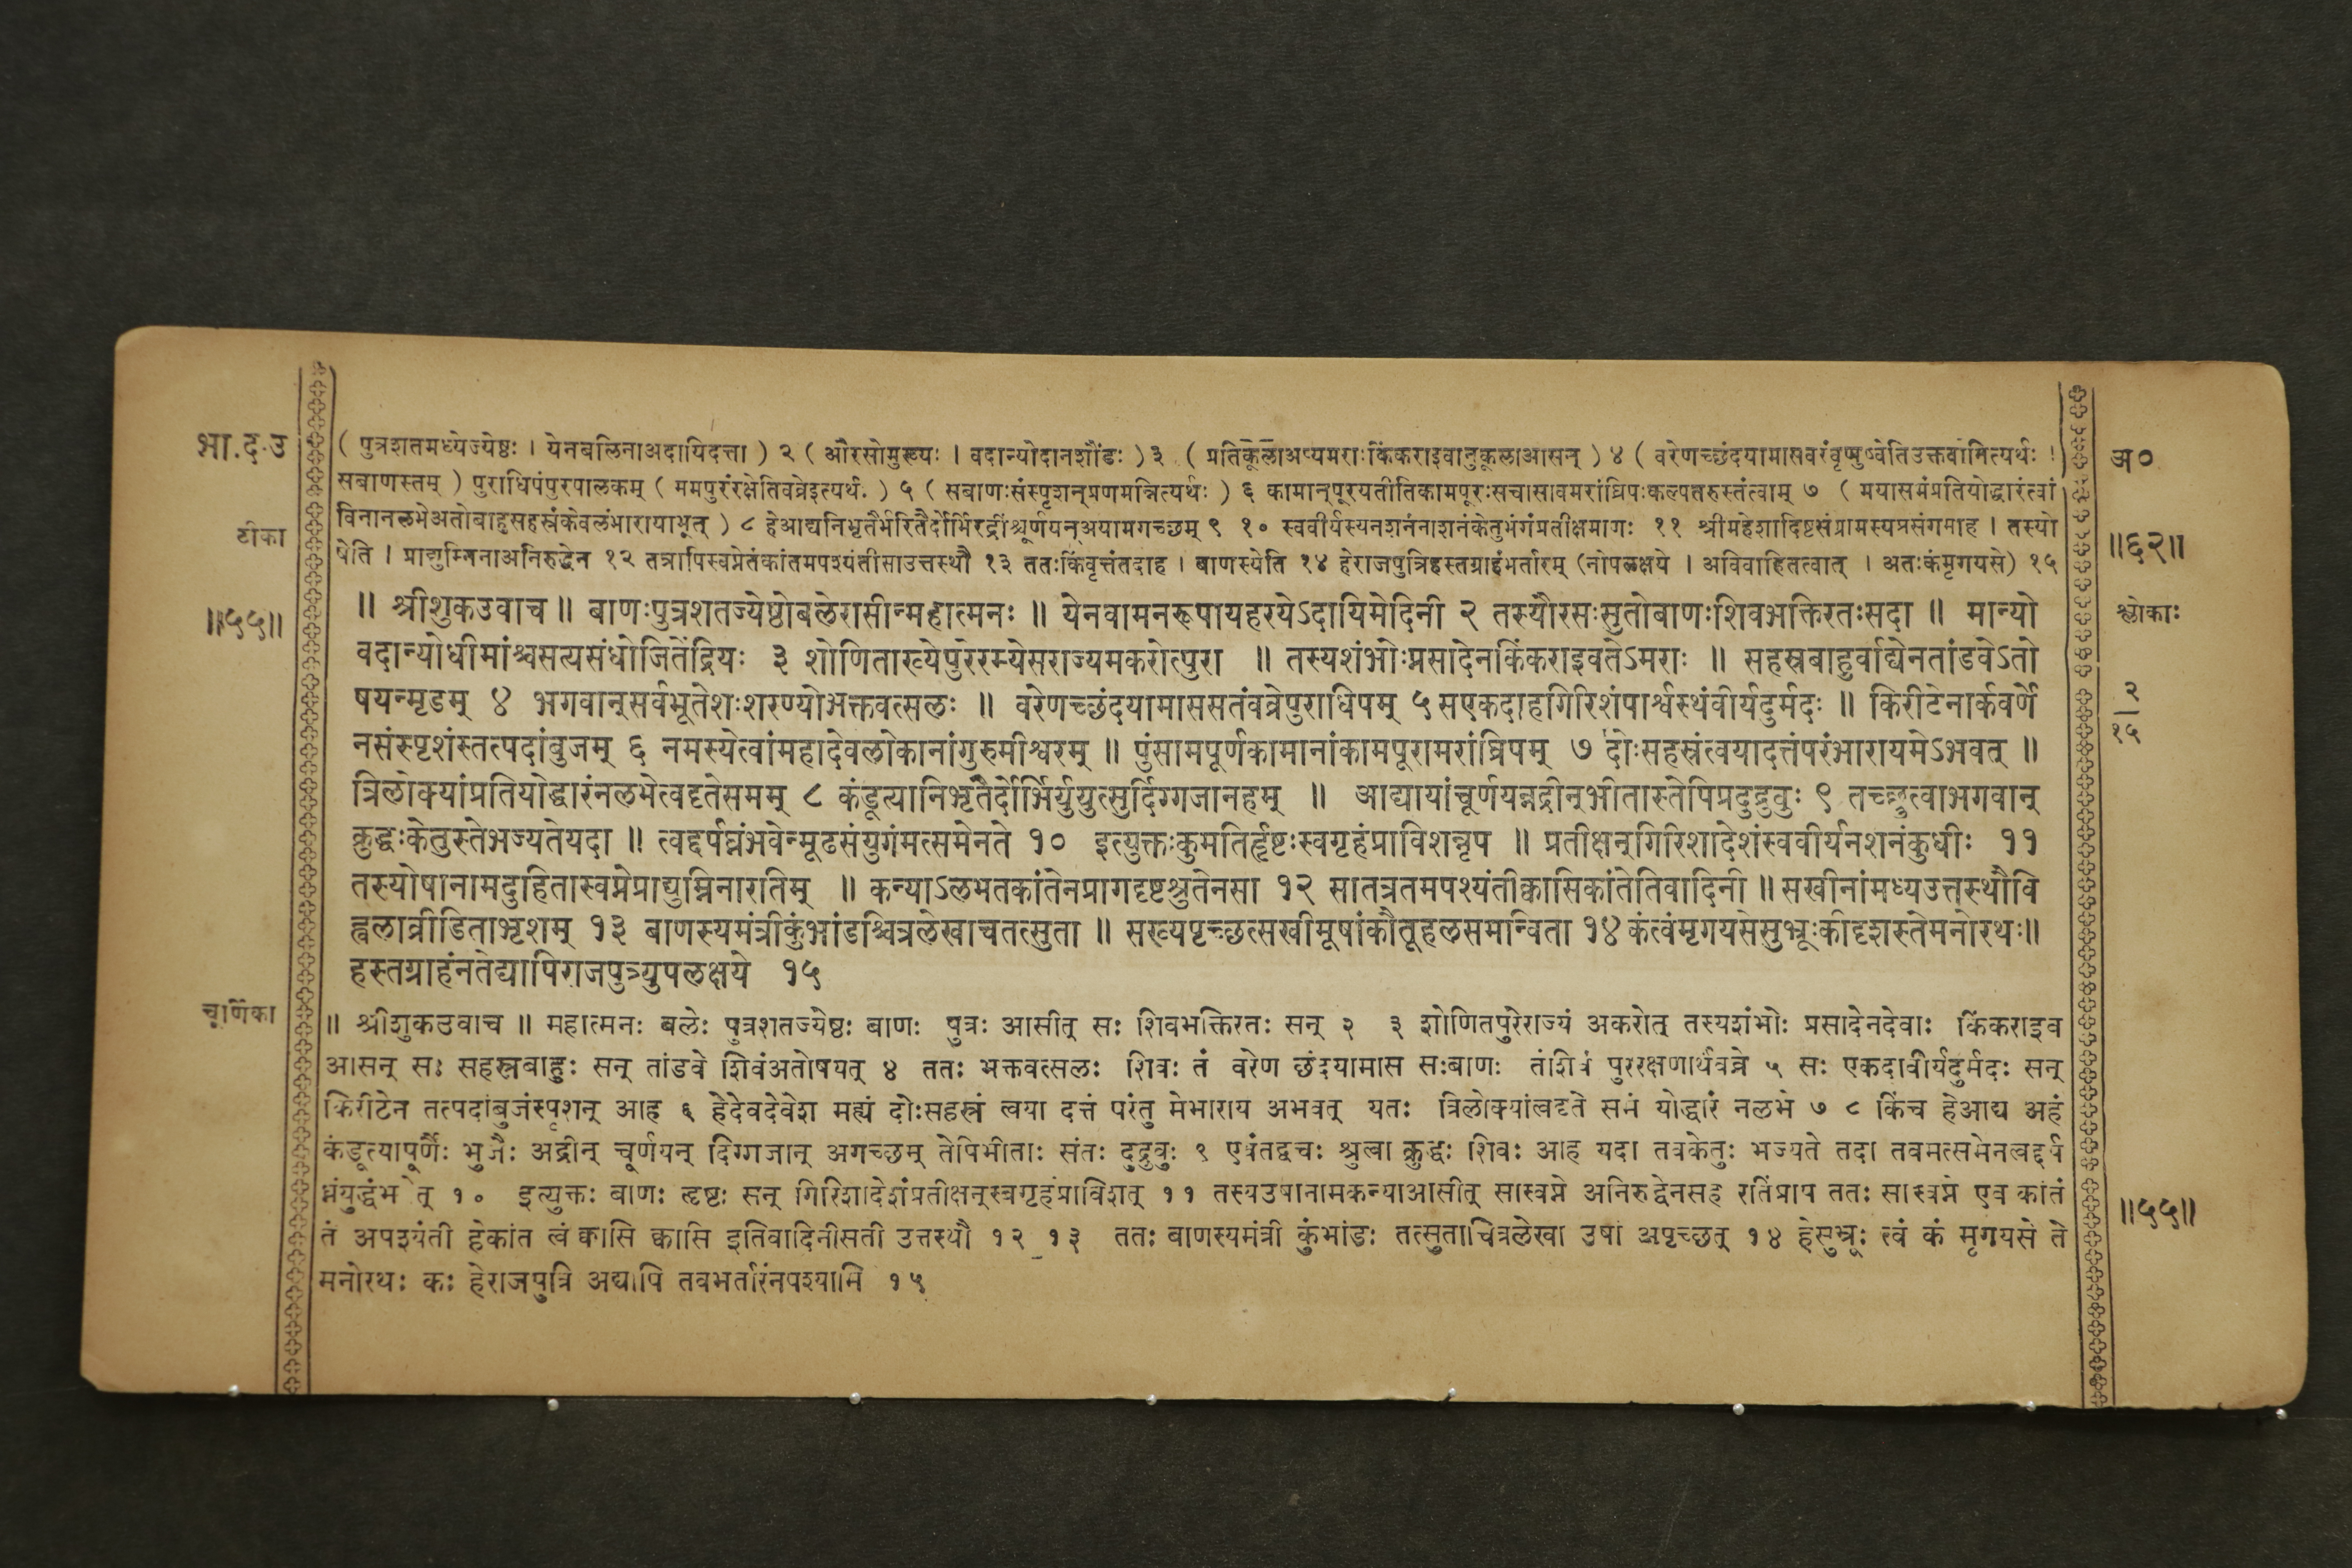 भा.द.उ
( पुत्रशतमध्येज्येष्ठः । येनबलिनाअदायिदत्ता ) २ ( औरसोमुख्यः । वदान्योदानशौंडः ) ३ ( प्रतिकूलाअप्यमराःकिंकराइवानुकूलाआसन् ) ४ ( वरेणच्छंदयामासवरंवृणुष्वेतिउक्तवानित्यर्थः ।
अ०
सबाणस्तम् ) पुराधिपंपुरपालकम् ( ममपुरंरक्षेतिवव्रेइत्यर्थः ) ५ ( सबाणःसंस्पृशन्प्रणमन्नित्यर्थः ) ६ कामान्पूरयतीतिकामपूरःसचासावमरांघ्रिपःकल्पतरुस्तंत्वाम् ७ ( मयासमंप्रतियोद्धारंत्वां
टीका
विनानलभेअतोबाहुसहस्रंकेवलंभारायाभूत् ) ८ हेआद्यनिभृतैर्भरितैर्दोर्भिरद्रींश्चूर्णयन्अयामगच्छम् ९ १० स्ववीर्यस्यनशनंनाशनंकेतुभंगंप्रतीक्षमाणः ११ श्रीमहेशादिष्टसंग्रामस्यप्रसंगमाह । तस्यो
॥६२॥
षेति । प्राद्युम्निनाअनिरुद्धेन १२ तत्रापिस्वप्नेतंकांतमपश्यंतीसाउत्तस्थौ १३ ततःकिंवृत्तंतदाह । बाणस्येति १४ हेराजपुत्रिहस्तग्राहंभर्तारम् (नोपलक्षये । अविवाहितत्वात् । अतःकंमृगयसे) १५
॥५५॥
॥ श्रीशुकउवाच ॥ बाणःपुत्रशतज्येष्ठोबलेरासीन्महात्मनः ॥ येनवामनरूपायहरयेऽदायिमेदिनी २ तस्यौरसःसुतोबाणःशिवभक्तिरतःसदा ॥ मान्यो
श्लोकाः
वदान्योधीमांश्चसत्यसंधोजितेंद्रियः ३ शोणिताख्येपुरेरम्येसराज्यमकरोत्पुरा ॥ तस्यशंभोःप्रसादेनकिंकराइवतेऽमराः ॥ सहस्रबाहुर्वाद्येनतांडवेऽतो
षयन्मृडम् ४ भगवान्सर्वभूतेशःशरण्योभक्तवत्सलः ॥ वरेणच्छंदयामाससतंवव्रेपुराधिपम् ५ सएकदाहगिरिशंपार्श्वस्थंवीर्यदुर्मदः ॥ किरीटेनार्कवर्णे
२
१५
नसंस्पृशंस्तत्पदांबुजम् ६ नमस्येत्वांमहादेवलोकानांगुरुमीश्वरम् ॥ पुंसामपूर्णकामानांकामपूरामरांघ्रिपम् ७ दोःसहस्रंत्वयादत्तंपरंभारायमेऽभवत् ॥
त्रिलोक्यांप्रतियोद्धारंनलभेत्वदृतेसमम् ८ कंडूत्यानिभृतैर्दोर्भिर्युयुत्सुर्दिग्गजानहम् ॥ आद्यायांचूर्णयन्नद्रीन्भीतास्तेपिप्रदुद्रुवुः ९ तच्छ्रुत्वाभगवान्
क्रुद्धःकेतुस्तेभज्यतेयदा ॥ त्वद्दर्पघ्नंभवेन्मूढसंयुगंमत्समेनते १० इत्युक्तःकुमतिर्हृष्टःस्वगृहंप्राविशन्नृप ॥ प्रतीक्षन्गिरिशादेशंस्ववीर्यनशनंकुधीः ११
तस्योषानामदुहितास्वप्नेप्राद्युम्निनारतिम् ॥ कन्याऽलभतकांतेनप्रागदृष्टश्रुतेनसा १२ सातत्रतमपश्यंतीक्वासिकांतेतिवादिनी ॥ सखीनांमध्यउत्तस्थौवि
ह्वलाव्रीडिताभृशम् १३ बाणस्यमंत्रीकुंभांडश्चित्रलेखाचतत्सुता ॥ सख्यपृच्छत्सखीमूषांकौतूहलसमन्विता १४ कंत्वंमृगयसेसुभ्रूःकीदृशस्तेमनोरथः॥
हस्तग्राहंनतेद्यापिराजपुत्र्युपलक्षये १५
चूर्णिका
॥ श्रीशुकउवाच ॥ महात्मनः बलेः पुत्रशतज्येष्ठः बाणः पुत्रः आसीत् सः शिवभक्तिरतः सन् २ ३ शोणितपुरेराज्यं अकरोत् तस्यशंभोः प्रसादेनदेवाः किंकराइव
आसन् सः सहस्रबाहुः सन् तांडवे शिवंअतोषयत् ४ ततः भक्तवत्सलः शिवः तं वरेण छंदयामास सःबाणः तंशिवं पुररक्षणार्थंवव्रे ५ सः एकदावीर्यदुर्मदः सन्
किरीटेन तत्पदांबुजंस्पृशन् आह ६ हेदेवदेवेश मह्यं दोःसहस्रं त्वया दत्तं परंतु मेभाराय अभवत् यतः त्रिलोक्यांत्वदृते समं योद्धारं नलभे ७ ८ किंच हेआद्य अहं
कंडूत्यापूर्णैः भुजैः अद्रीन् चूर्णयन् दिग्गजान् अगच्छम् तेपिभीताः संतः दुद्रुवुः ९ एवंतद्वचः श्रुत्वा क्रुद्धः शिवः आह यदा तवकेतुः भज्यते तदा तवमत्समेनत्वद्दर्प
घ्नंयुद्धंभ ेत् १० इत्युक्तः बाणः हृष्टः सन् गिरिशादेशंप्रतीक्षन्स्वगृहंप्राविशत् ११ तस्यउषानामकन्याआसीत् सास्वप्ने अनिरुद्धेनसह रतिंप्राप ततः सास्वप्ने एव कांतं
॥५५॥
तं अपश्यंती हेकांत त्वं क्वासि क्वासि इतिवादिनीसती उत्तस्थौ १२ १३ ततः बाणस्यमंत्री कुंभांडः तत्सुताचित्रलेखा उषां अपृच्छत् १४ हेसुभ्रूः त्वं कं मृगयसे ते
मनोरथः कः हेराजपुत्रि अद्यापि तवभर्तारंनपश्यामि १५